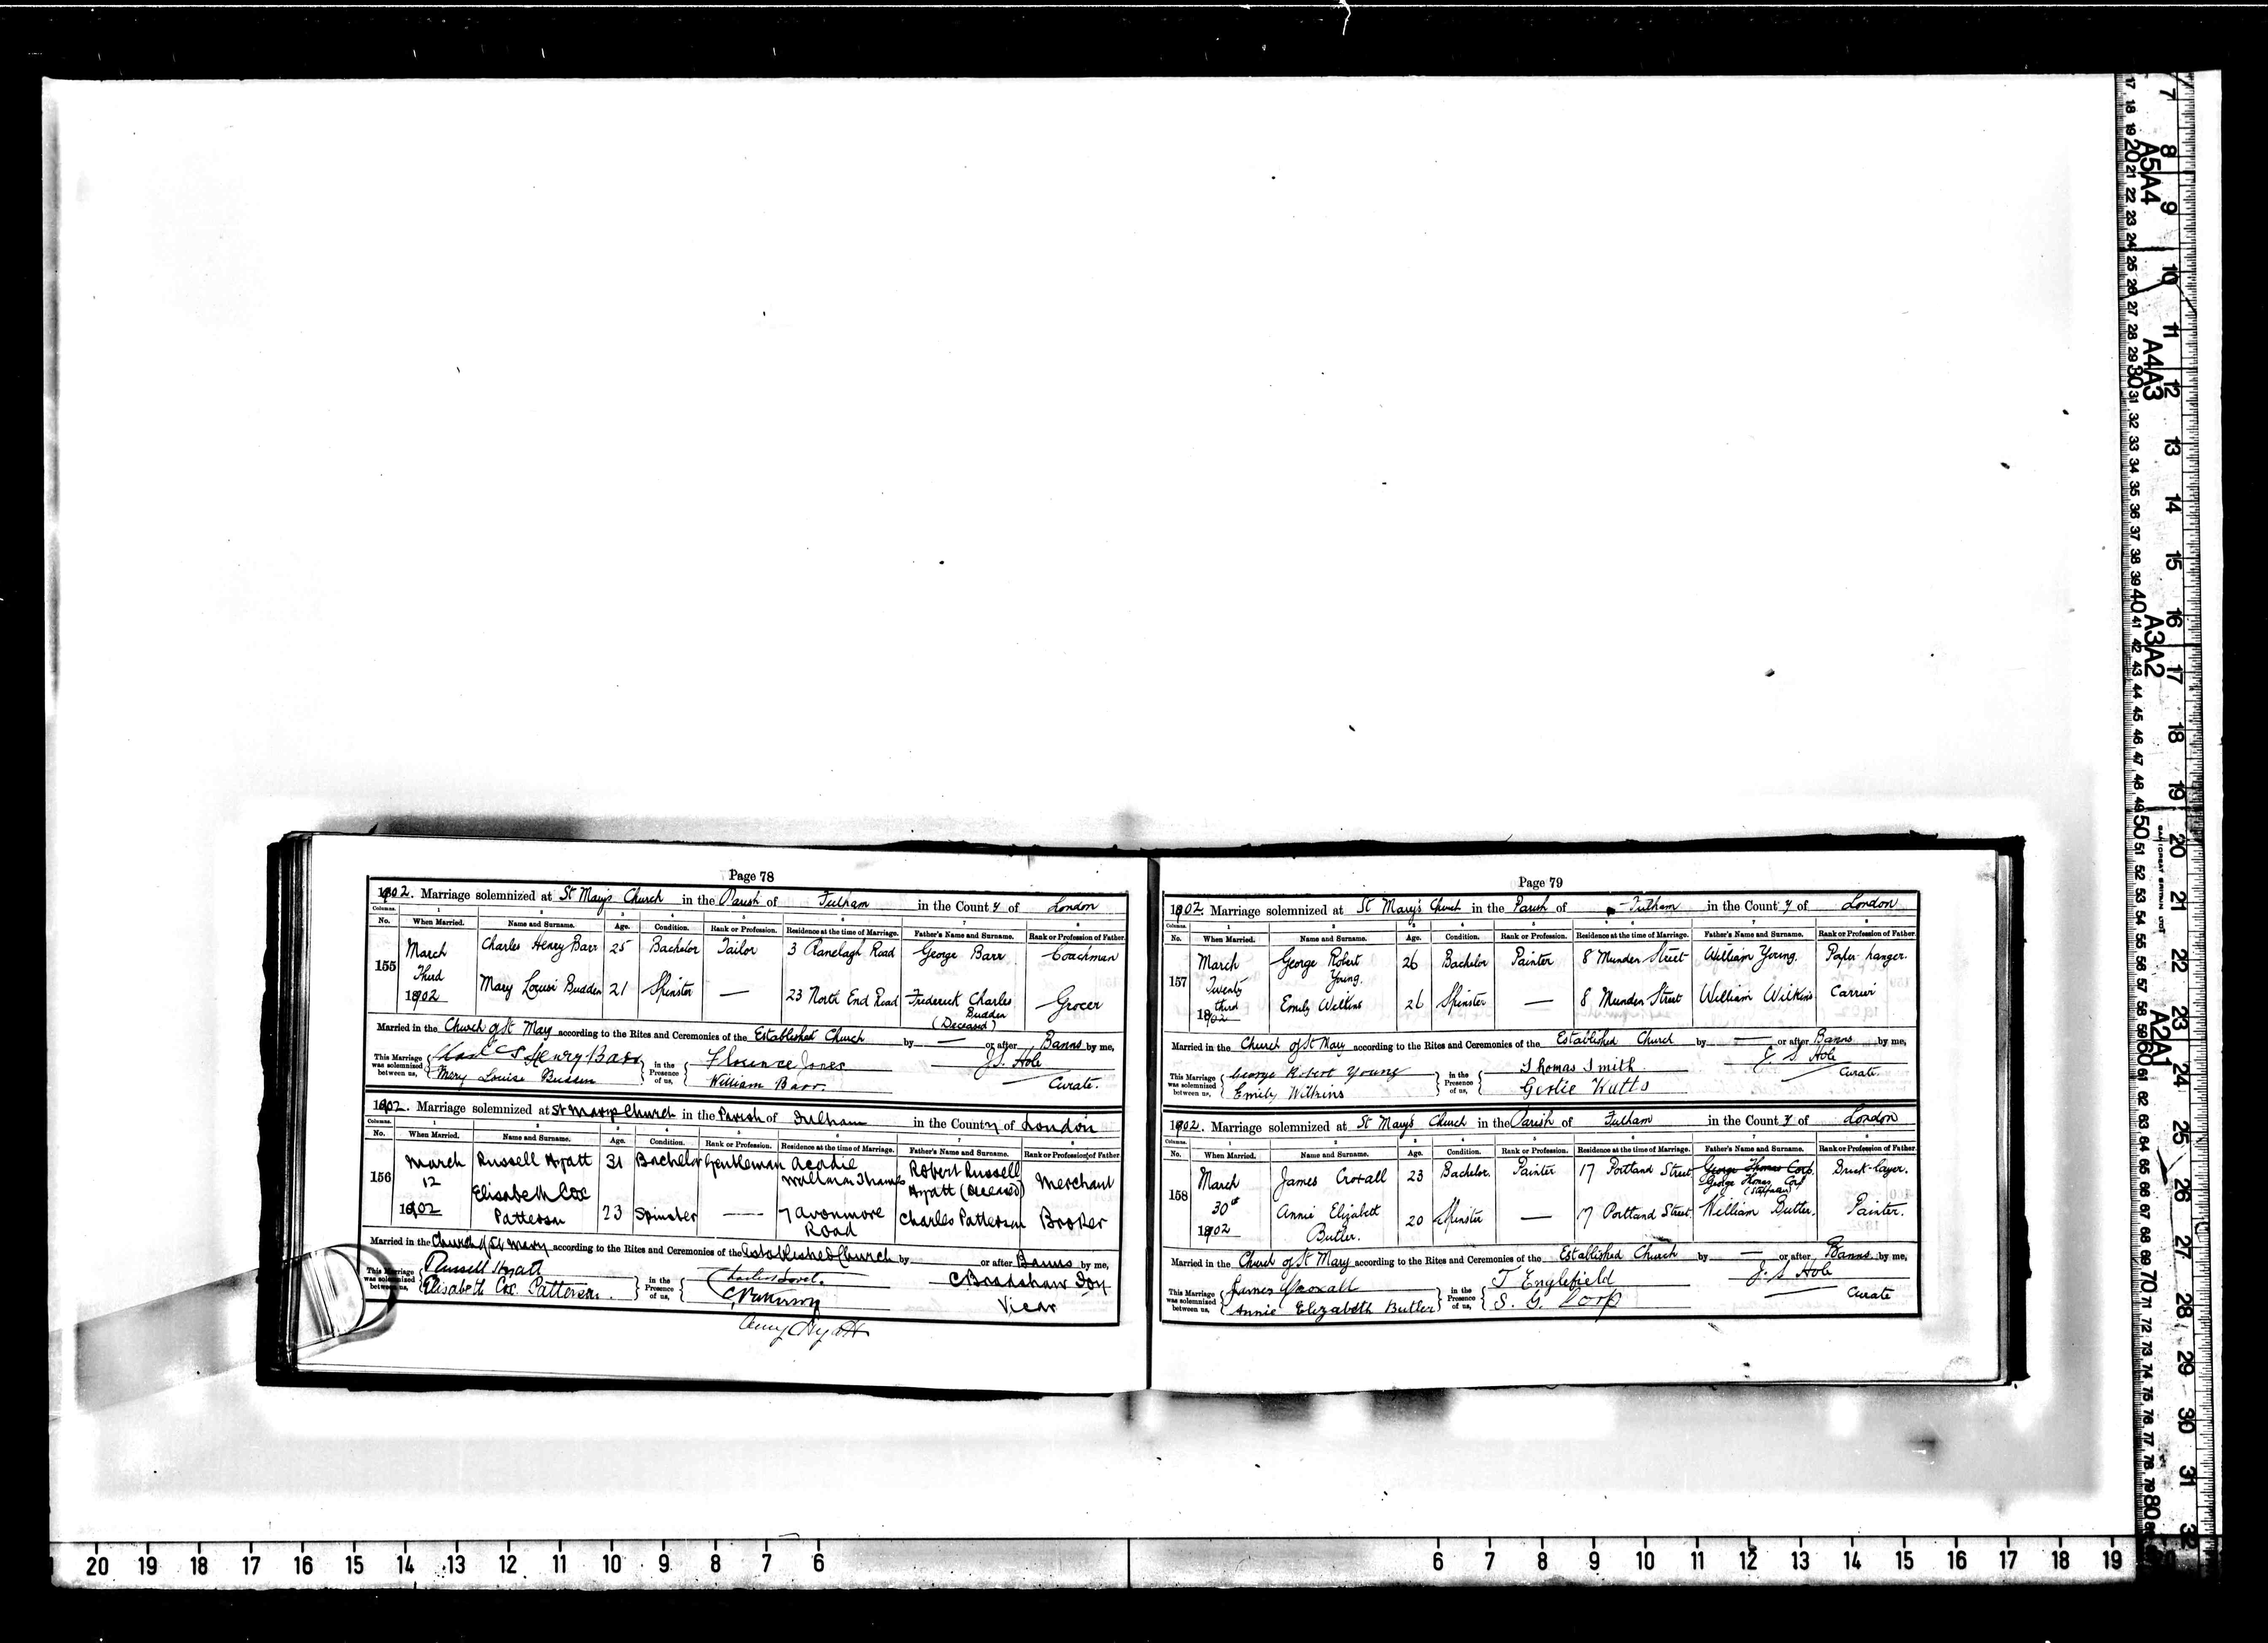 Page 78
1902. Marriage solemnized at St Mary's Church in the Parish of Fulham in the County of London
Columns. 1 2 3 4 5 6 7 8
No. When Married. Name and Surname. Age. Condition. Rank or Profession. Residence at the time of Marriage. Father's Name and Surname. Rank or Profession of Father.
155 March Third 1902 Charles Henry Barr 25 Bachelor Tailor 3 Ranelagh Road George Barr Coachman
Mary Louise Budden 21 Spinster — 23 North End Road Frederick Charles Budden (Deceased) Grocer
Married in the Church of St Mary according to the Rites and Ceremonies of the Established Church by — or after Banns by me,
This Marriage was solemnized between us, Henry Barr in the Presence of us, Florence Jones J.S. Hole
Mary Louise William Barr. Curate.
1902. Marriage solemnized at St Mary's Church in the Parish of Fulham in the County of London
Columns. 1 2 3 4 5 6 7 8
No. When Married. Name and Surname. Age. Condition. Rank or Profession. Residence at the time of Marriage. Father's Name and Surname. Rank or Profession of Father
156 March 12 1902 Russell Hyatt 31 Bachelor Gentleman Acadie Robert Russell Hyatt (deceased) Merchant
Elisabeth Cox Patterson 23 Spinster — 7 Avonmore Road Charles Patterson Broker
Married in the Church of St Mary according to the Rites and Ceremonies of the Established Church by or after Banns by me,
This Marriage was solemnized between us, Russell Hyatt in the Presence of us, C Bradshaw Foy
Elisabeth Cox Patterson. C Patterson Vicar
Hyatt
Page 79
1902. Marriage solemnized at St Mary's Church in the Parish of Fulham in the County of London
1 2 3 4 5 6 7 8
No. When Married. Name and Surname. Age. Condition. Rank or Profession. Residence at the time of Marriage. Father's Name and Surname. Rank or Profession of Father.
157 March Twenty third 1902 George Robert Young. 26 Bachelor Painter 8 Munden Street William Young. Paper-hanger.
Emily Wilkins 26 Spinster — 8 Munden Street William Wilkins Carrier
Married in the Church of St Mary according to the Rites and Ceremonies of the Established Church by — or after Banns by me,
This Marriage was solemnized between us, George Robert Young in the Presence of us, Thomas Smith J S Hole
Emily Wilkins Gertie Curate.
1902. Marriage solemnized at St Mary's Church in the Parish of Fulham in the County of London
Columns. 1 2 3 4 5 6 7 8
No. When Married. Name and Surname. Age. Condition. Rank or Profession. Residence at the time of Marriage. Father's Name and Surname. Rank or Profession of Father.
158 March 30th 1902 James Croxall 23 Bachelor. Painter 17 Portland Street George Thomas Corp George Thomas Corp (stepfather) Brick-layer.
Annie Elizabeth Butler. 20 Spinster — 17 Portland Street William Butler. Painter.
Married in the Church of St Mary according to the Rites and Ceremonies of the Established Church by — or after Banns by me,
This Marriage was solemnized between us, James Croxall in the Presence of us, T Englefield J. S Hole
Annie Elizabeth Butler S. G. Corp Curate